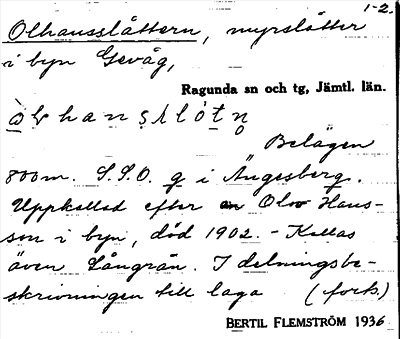 1-2.
Olhausslåttern, myrslåtter
i byn Gevåg,
Ragunda sn och tg, Jämtl. län.
Belägen
800m. S.S.O. g i Ängesberg.
Uppkallad efter Olov Hans-
son i byn, död 1902. - Kallas
även Långrån. I delningsbe-
skrivningen till laga (forts.)
BERTIL FLEMSTRÖM 1936